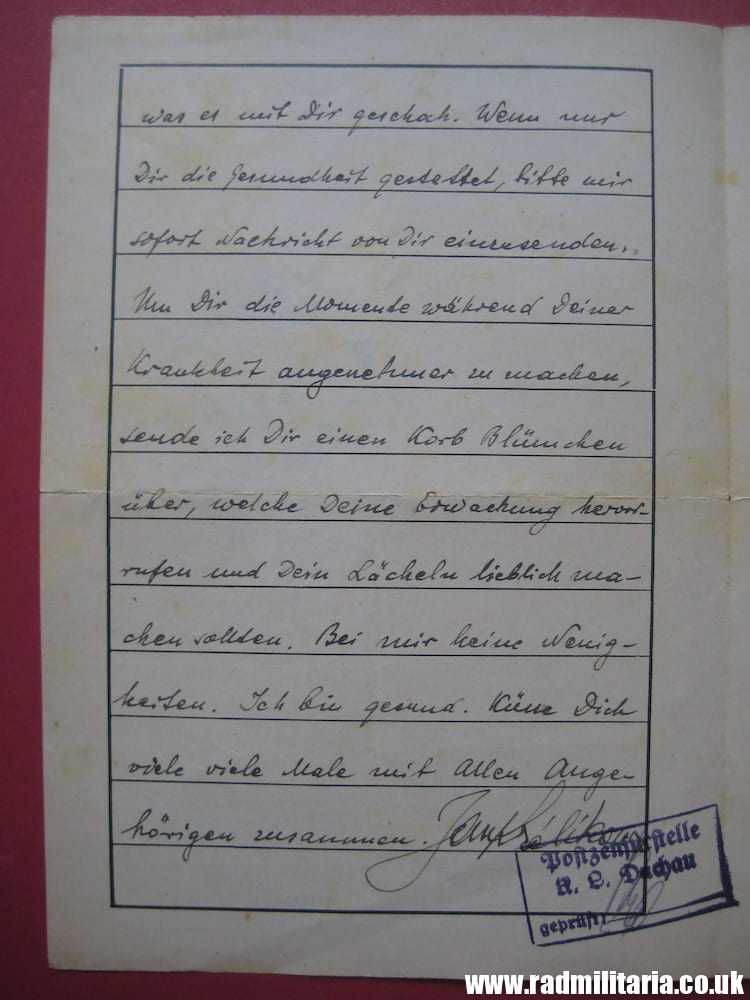 was es mit Dir geschah. Wenn nur
Dir die Gesundheit gestattet, bitte mir
sofort Nachricht von Dir einzusenden..
Um Dir die Momente während Deiner
Krankheit angenehmer zu machen,
sende ich Dir einen Korb Blümchen
über, welche Deine Erwachung hervor-
rufen und Dein Lächeln lieblich ma-
chen sollten. Bei mir keine Neuig-
keiten. Ich bin gesund. Küsse Dich
viele viele Male mit Allen Ange-
hörigen zusammen.
Postzensurstelle
K. L. Dachau
geprüft:
www.radmilitaria.co.uk